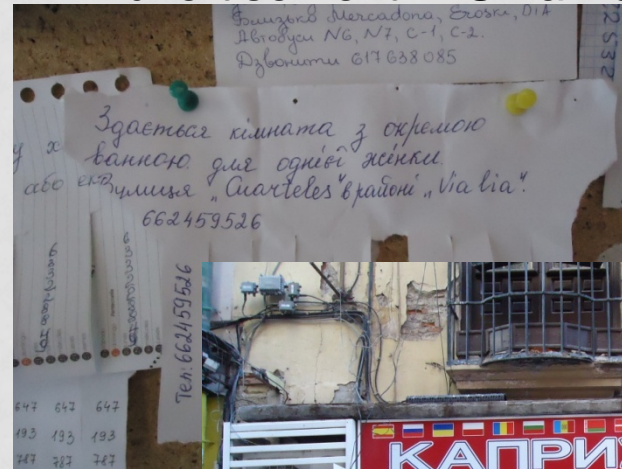 Близько Mercadona, Eroski, DIA
Автобуси N6, N7, C-1, C-2.
Дзвонити 617638085
Здається кімната з окремою
ванною для однієї жінки
вулиця „Cuarteles" в районі „Vialia".
662459526
або
Тел: 662459516
647 647 647
193 193 193
787 787 787
КАПРИ